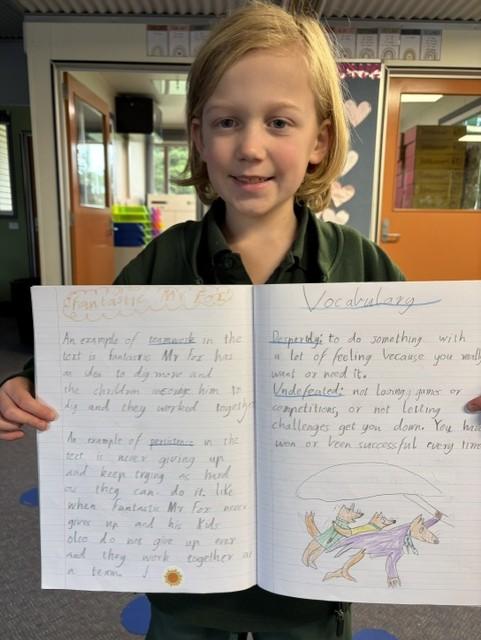 Fantastic Mr Fox
An example of teamwork in the
text is fantastic Mr Fox has
an idea to dig more and
the children incourge him to
dig and they worked together
An example of persistence in the
text is never giving up
and keep trying as hard
as they can do it. like
when fantastic Mr Fox never
gives up and his kids
also do not give up ever
and they work together as
a team!
Vocabulary
Desperatly: to do something with
a lot of feeling vecause you really
want or need it.
Undefeated: not losing games or
competitions, or not letting
challenges get you down. You have
won or been successful every time